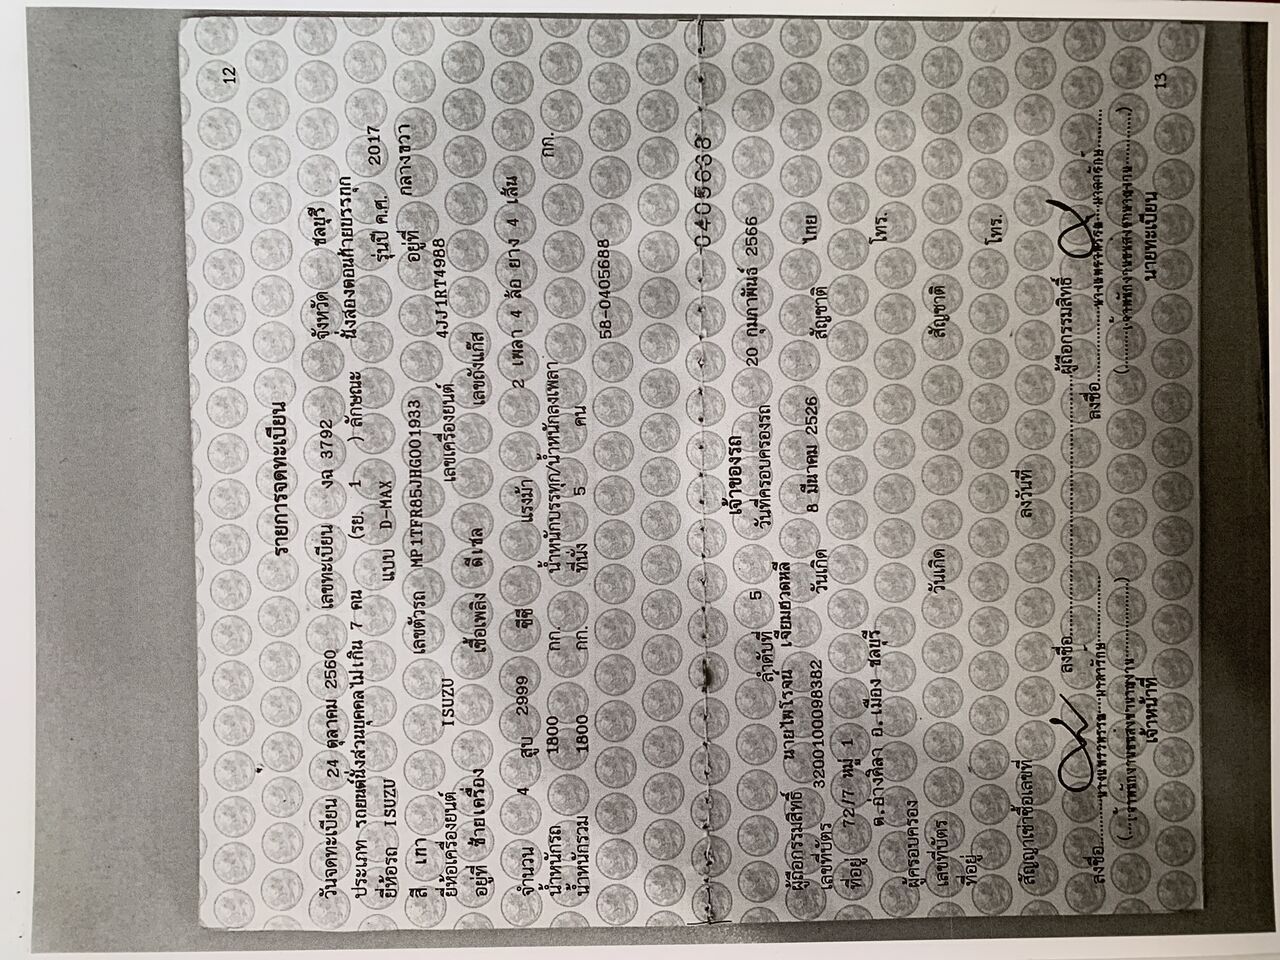 12
รายการจดทะเบียน
วันจดทะเบียน 24 ตุลาคม 2560 เลขทะเบียน งฉ 3792 จังหวัด ชลบุรี
ประเภท รถยนต์นั่งส่วนบุคคลไม่เกิน 7 คน (รย. 1 ) ลักษณะ นั่งสองตอนท้ายบรรทุก
ยี่ห้อรถ ISUZU แบบ D-MAX รุ่นปี ค.ศ. 2017
สี เทา เลขตัวรถ MP1TFR85JHG001933 อยู่ที่ กลางขวา
ยี่ห้อเครื่องยนต์ ISUZU เลขเครื่องยนต์ 4JJ1RT4988
อยู่ที่ ซ้ายเครื่อง เชื้อเพลิง ดีเซล เลขถังแก๊ส
จำนวน 4 สูบ 2999 ซีซี แรงม้า 2 เพลา 4 ล้อ ยาง 4 เส้น
น้ำหนักรถ 1800 กก. น้ำหนักบรรทุก/น้ำหนักลงเพลา กก.
น้ำหนักรวม 1800 กก. ที่นั่ง 5 คน
58-0405688
0405688
เจ้าของรถ
ลำดับที่ 5 วันที่ครอบครองรถ 20 กุมภาพันธ์ 2566
ผู้ถือกรรมสิทธิ์ นายไพโรจน์ เจียมฮวดหลี
เลขที่บัตร 3200100098382 วันเกิด 8 มีนาคม 2526 สัญชาติ ไทย
ที่อยู่ 72/7 หมู่ 1
ต.อ่างศิลา อ.เมือง ชลบุรี โทร.
ผู้ครอบครอง
เลขที่บัตร วันเกิด สัญชาติ
ที่อยู่ โทร.
สัญญาเช่าซื้อเลขที่ ลงวันที่
ลงชื่อ ผู้ถือกรรมสิทธิ์
ลงชื่อ ลงชื่อ
เจ้าหน้าที่ นายทะเบียน
13